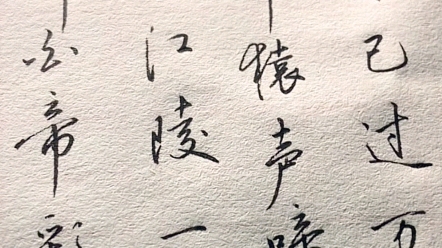 白帝彩
江陵一
猿声啼
已过万